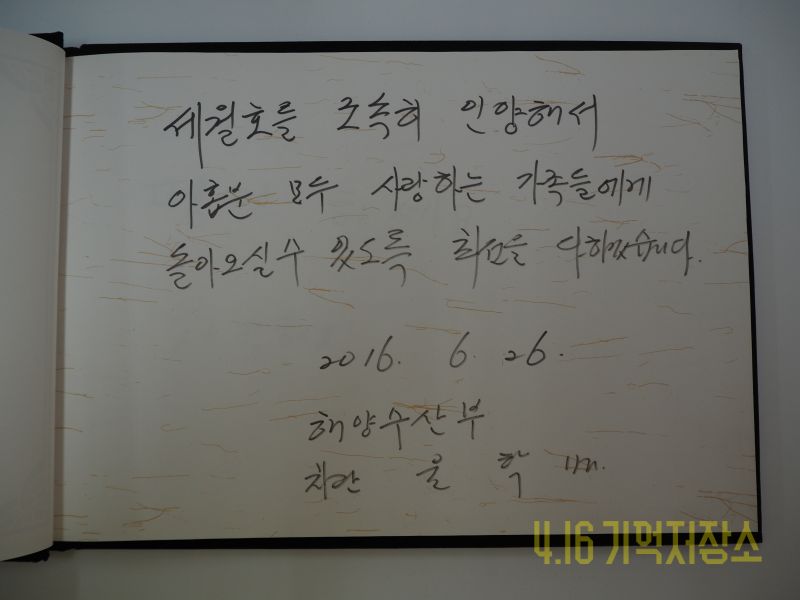 세월호를 조속히 인양해서
아홉분 모두 사랑하는 가족들에게
돌아오실 수 있도록 최선을 다하겠습니다.
2016. 6. 26.
해양수산부
차관 윤 학
4.16 기억저장소